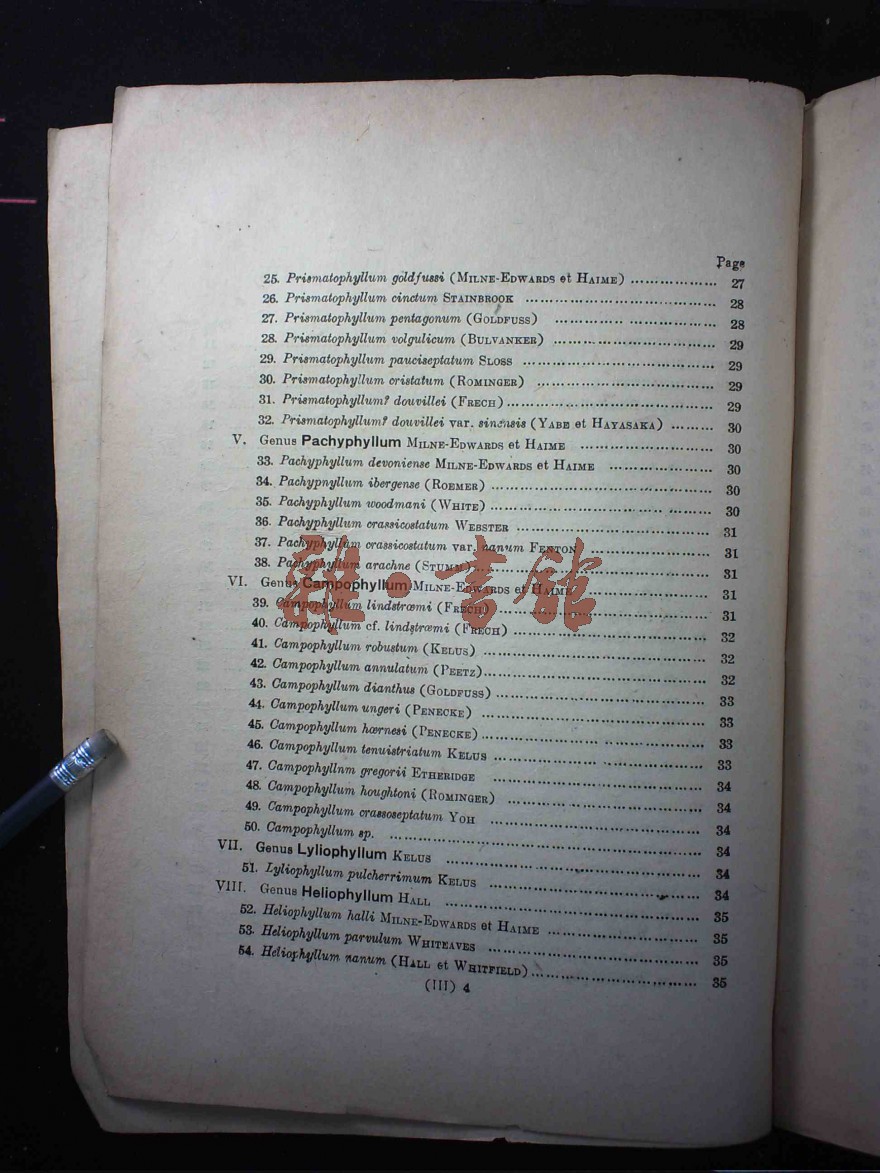 Page
25. Prismatophyllum goldfussi (MILNE-EDWARDS et HAIME) .................. 27
26. Prismatophyllum cinctum STAINBROOK .................. 28
27. Prismatophyllum pentagonum (GOLDFUSS) .................. 28
28. Prismatophyllum volgulicum (BULVANKER) .................. 29
29. Prismatophyllum pauciseptatum SLOSS .................. 29
30. Prismatophyllum cristatum (ROMINGER) .................. 29
31. Prismatophyllum? douvillei (FRECH) .................. 29
32. Prismatophyllum? douvillei var. sinensis (YABE et HAYASAKA) ......... 30
V. Genus Pachyphyllum MILNE-EDWARDS et HAIME .................. 30
33. Pachyphyllum devoniense MILNE-EDWARDS et HAIME .................. 30
34. Pachypnyllum ibergense (ROEMER) .................. 30
35. Pachyphyllum woodmani (WHITE) .................. 30
36. Pachyphyllum crassicostatum WEBSTER .................. 31
37. Pachyphyllum crassicostatum var. nanum FENTON .................. 31
38. Pachyphyllum arachne (STUMM) .................. 31
VI. Genus Campophyllum MILNE-EDWARDS et HAIME .................. 31
39. Campophyllum lindstrœmi (FRECH) .................. 31
40. Campophyllum cf. lindstrœmi (FRECH) .................. 32
41. Campophyllum robustum (KELUS) .................. 32
42. Campophyllum annulatum (PEETZ) .................. 32
43. Campophyllum dianthus (GOLDFUSS) .................. 33
44. Campophyllum ungeri (PENECKE) .................. 33
45. Campophyllum hœrnesi (PENECKE) .................. 33
46. Campophyllum tenuistriatum KELUS .................. 33
47. Campophyllnm gregorii ETHERIDGE .................. 34
48. Campophyllum houghtoni (ROMINGER) .................. 34
49. Campophyllum crassoseptatum YOH .................. 34
50. Campophyllum sp. .................. 34
VII. Genus Lyliophyllum KELUS .................. 34
51. Lyliophyllum pulcherrimum KELUS .................. 34
VIII. Genus Heliophyllum HALL .................. 35
52. Heliophyllum halli MILNE-EDWARDS et HAIME .................. 35
53. Heliophyllum parvulum WHITEAVES .................. 35
54. Heliophyllum nanum (HALL et WHITFIELD) .................. 35
(III) 4
雜·書館